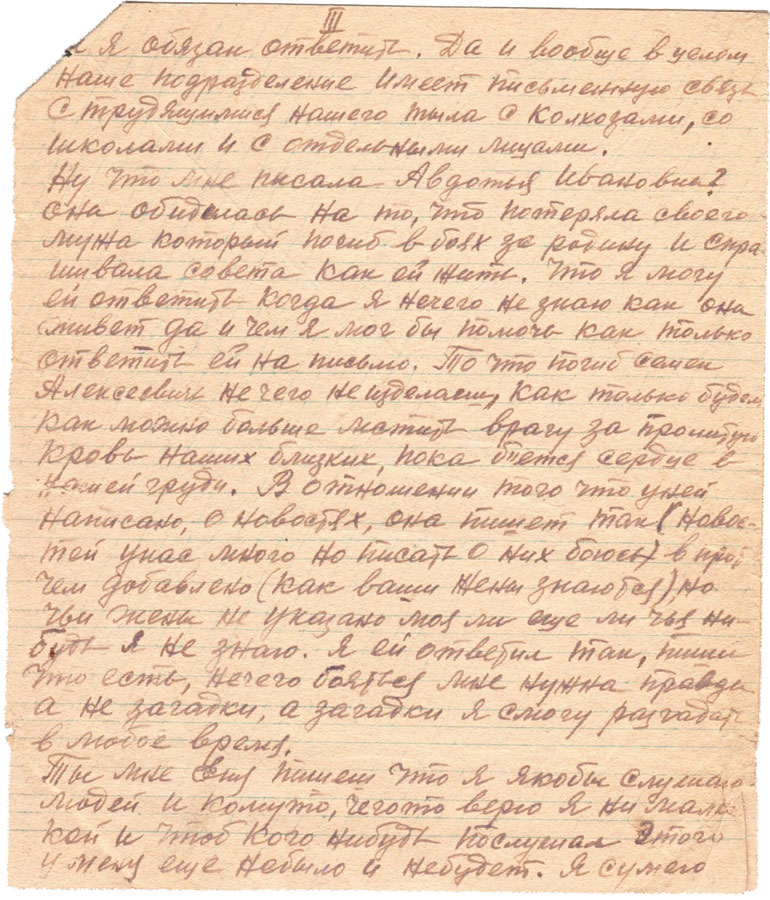 III
и я обязан ответить. Да и вообще в целом
наше подразделение имеет письменную связь
с трудящимися нашего тыла с колхозами, со
школами и с отдельными лицами.
Ну что мне писала Авдотья Ивановна?
она обиделась на то, что потеряла своего
мужа который погиб в боях за родину и спра-
шивала совета как ей жить. Что я могу
ей ответить когда я нечего не знаю как она
живет да и чем я мог бы помочь как только
ответить ей на письмо. То что погиб Семен
Алексеевич не чего не изделаеш, как только будем
как можно больше мстить врагу за пролитую
кровь наших близких, пока бъется сердце в
нашей груди. В отношении того что у ней
написано, о новостях, она пишет так (Новос-
тей унас много но писать о них боюсь) в
чем добавлено (как ваши жены знаются) но
чьи жены не указано моя ли еще ли чья ни-
будь я не знаю. Я ей ответил так, пиши
что есть, нечего бояться мне нужна правда
а не загадки, а загадки я смогу разгадать
в любое время.
Ты мне пишеш что я якобы слушаю
людей и комуто, чегото верю я ни
кой и чтоб кого нибудь послушал этого
у меня еще небыло и небудет. Я сумею